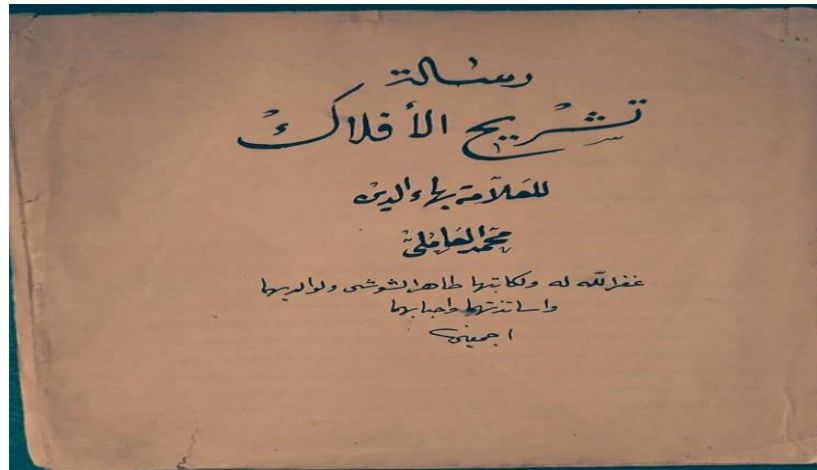 رسالة
تشريح الأفلاك
للعلامة بهاء الدين
محمد العاملي
غفر الله له ولكاتبها طاهر الشوشي ولوالديهما
واساتذتهما واحبابهما
اجمعين